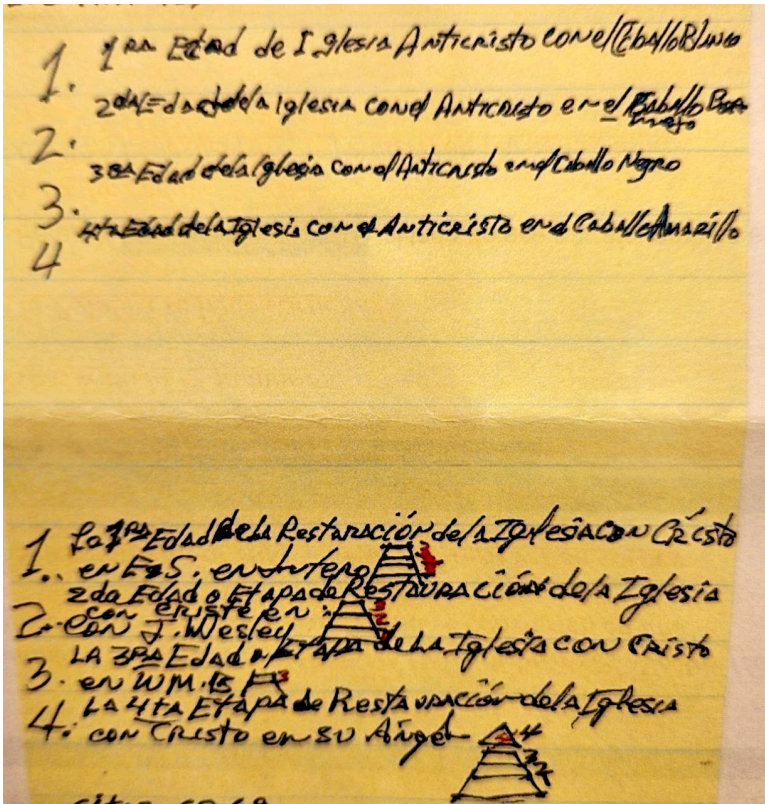 1. 1RA Edad de Iglesia Anticristo con el Caballo Blanco
2. 2da Edad de la Iglesia con el Anticristo en el Caballo
3. 3RA Edad de la Iglesia con el Anticristo en el Caballo Negro
4 4ta Edad de la Iglesia con el Anticristo en el Caballo Amarillo
1. La 1RA Edad de la Restauración de la Iglesia con Cristo
en E.S. en Lutero
2da Edad o Etapa de Restauración de la Iglesia
2. con Cristo en:
con J. Wesley
LA 3RA Edad o Etapa de LA Iglesia con Cristo
3. en WM. B 3
LA 4ta Etapa de Restauración de la Iglesia
4. con Cristo en su Ángel 4
3
2